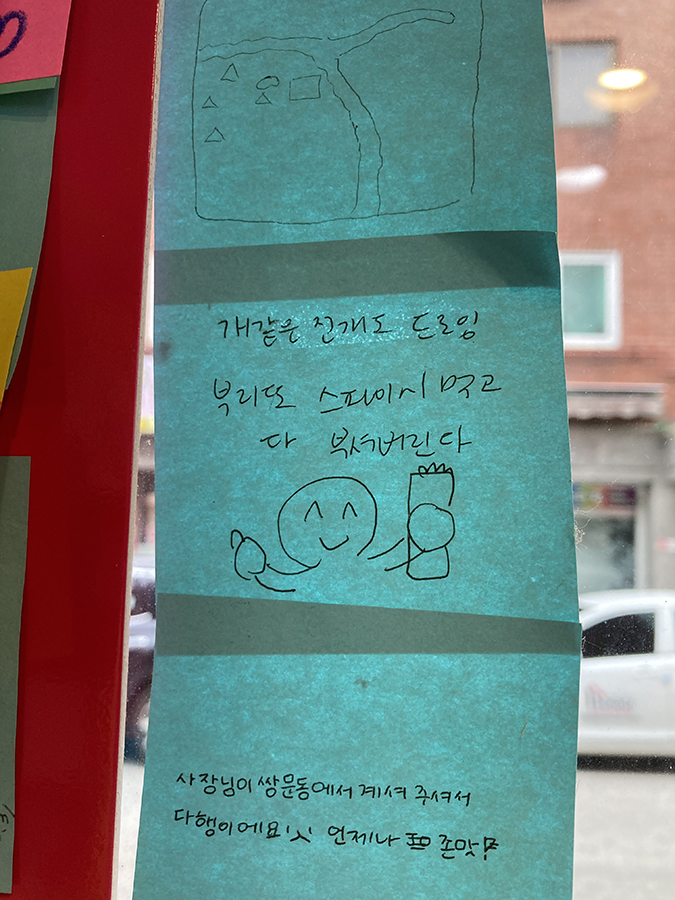 개같은 전개도 드로잉
부리또 스파이시 먹고
다 부셔버린다
사장님이 쌍문동에서 계셔 주셔서
다행이에요 언제나 존맛